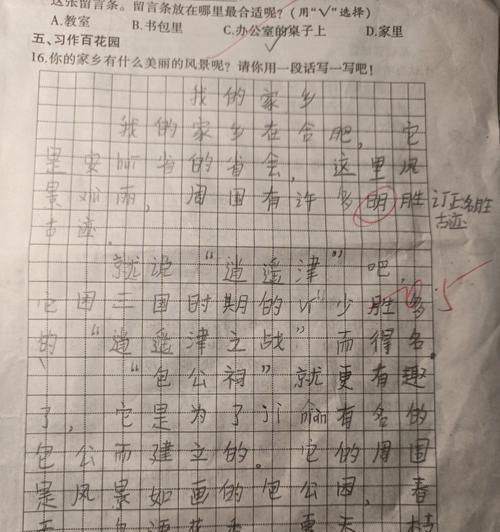 这张留言条。留言条放在哪里最合适呢?(用“√”选择)
A.教室 B.书包里 C.办公室的桌子上 D.家里
√
五、习作百花园
16.你的家乡有什么美丽的风景呢?请你用一段话写一写吧!
我的家乡
我的家乡在合肥,它
是安徽省的省会,这里风
景如丽,周围有许多明胜 订正名胜
古迹. 古迹
就说“逍遥津”吧,
它因三国时期的以少胜多
的“逍遥津之战”而得名。
“包公祠”就更有趣
了,它是为了纪 有名的
包公而建立的。它的周围
是风景如画的包公园,春